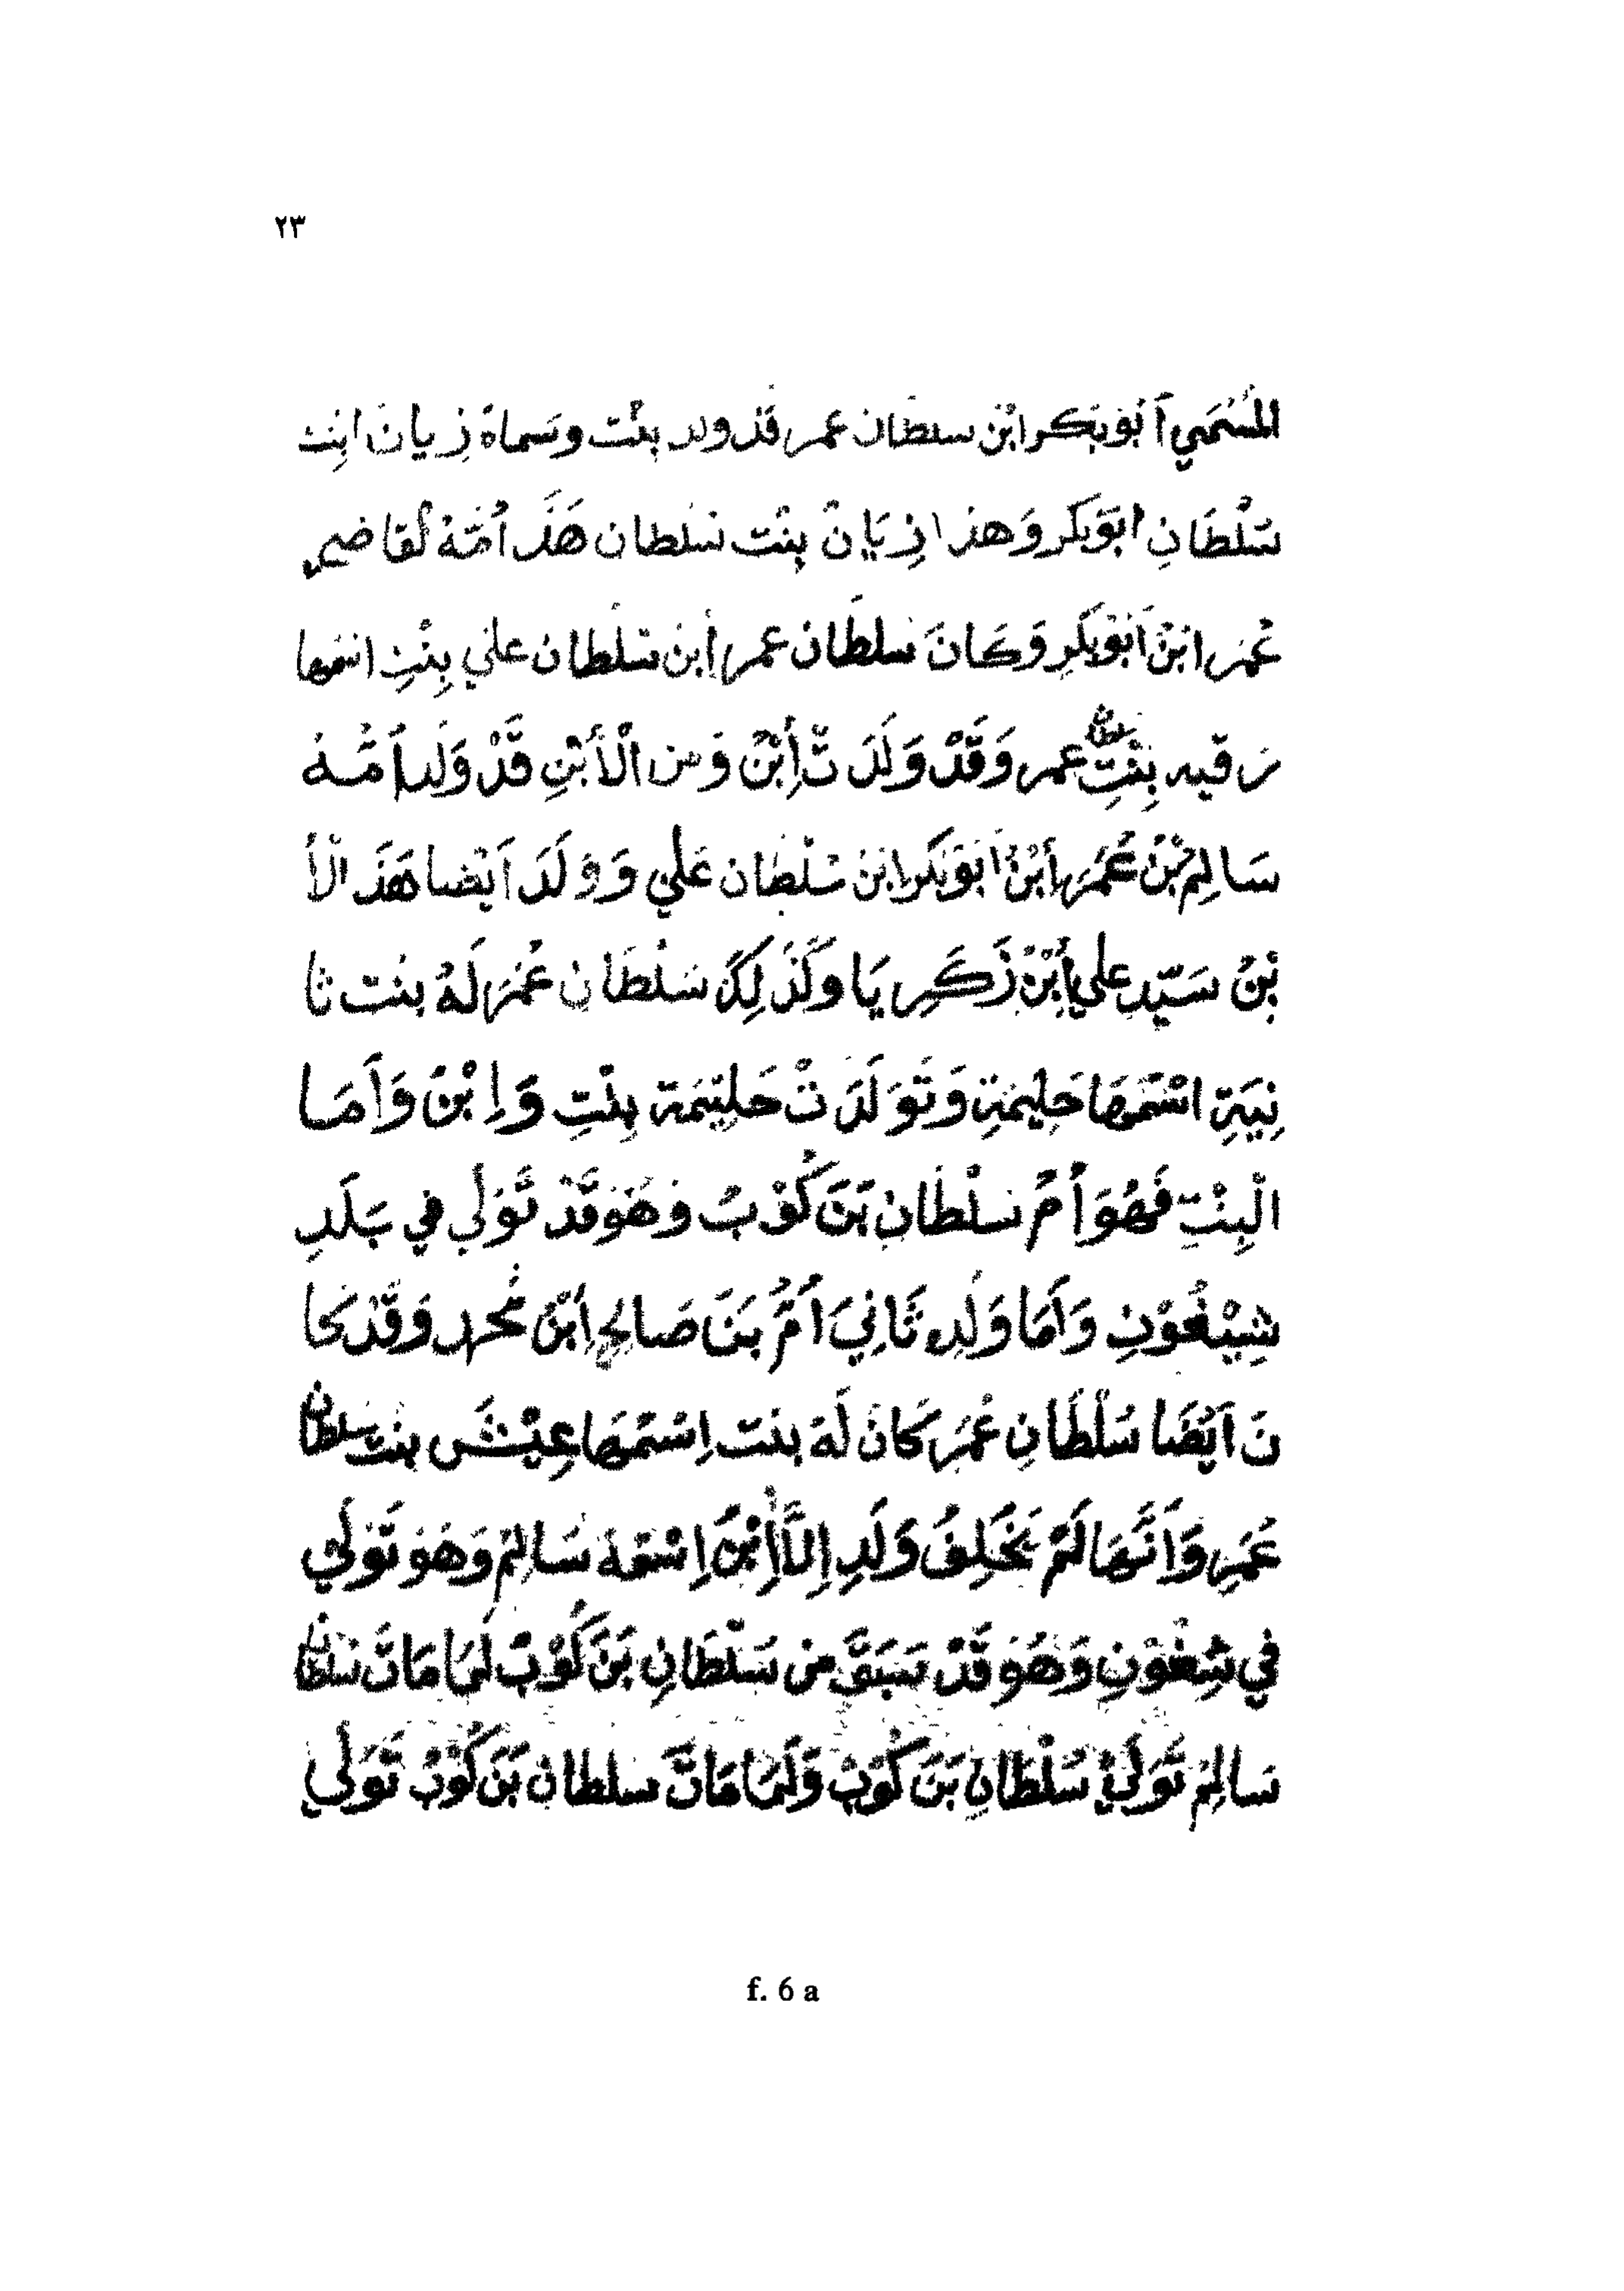 ٢٣
المُسَّمَي أَبُوبَكر ابْن سلطان عمر قَدْ ولد بِنْت وسَماهُ زِ يانَ ابِنت
سُلْطَانِ ابَوُبَكَر وَهذا زِيَانْ بِنْت سُلطان هَذَ اُمَّهُ لُقاضي
عُمَر ابْنُ اَبُوبَكَرِ وَكَانَ سُلطَان عمر اُبن سُلْطان علي بِنْتِ اسْمها
رَقيه بِنْتِ سلطان عمر وَقَدْ وَلَدَ تْ أِبْنٌ وَمن الْأَبْنِ قَدْ وَلَد اَمَّهُ
سَالِمْ بْنُ عُمَر اَبْنُ ابَوُبَكَر ابْن سُلْطان عَلي وَوُلَدَ اَيْضا هَذَ الْاَ
بْنُ سَيّد علي اِبْنُ زَكَرِ يَا وكَذَ لِكَ سَلْطَان عُمَر لَهُ بنت ثا
نِيَةِ اسْمَهَا حَلِيمَةِ وَتَوَ لَدَ تْ حَلَيْمَة بِنْتِ وَ اِ بْنُ وَاَمَا
الْبِنْتِ فَهُوَ اُمُ سلْطَان بَنَ كُوْبُ وَهُوَ قَدْ تَوَلَي في بَلَدِ
شِيْغُوْنِ وَاَمَا وَلَدِ ثَانِيَ اُمُّ بَنَ صَالح اَبْن مُحمد وَقَدْ كَا
نَ اَيْضَا سُلْطَانِ عُمَرَ كَانَ لَهَ بنت اِسْمَهَا عِيْشَ بنت سلطان
عُمَرِ وَاَنَّهَا لَمْ يَخَلِفُ وَلَدِ اِلاَّ اِبْنُ اِسْمهُ سَالِمْ وَهُوَ تَوَلَي
في شِغُوْنِ وَهُوَ قَدْ سَبَقَ من سَلْطَانِ بَنَ كُوْبُ لَمَا مَاتَ سلطان
سَالِمْ تَوَلَيْ سُلْطَانِ بَنَ كُوْبْ وَلَمَا مَاتَ سلطان بَنَ كُوْبُ تَوَلَي
f. 6 a